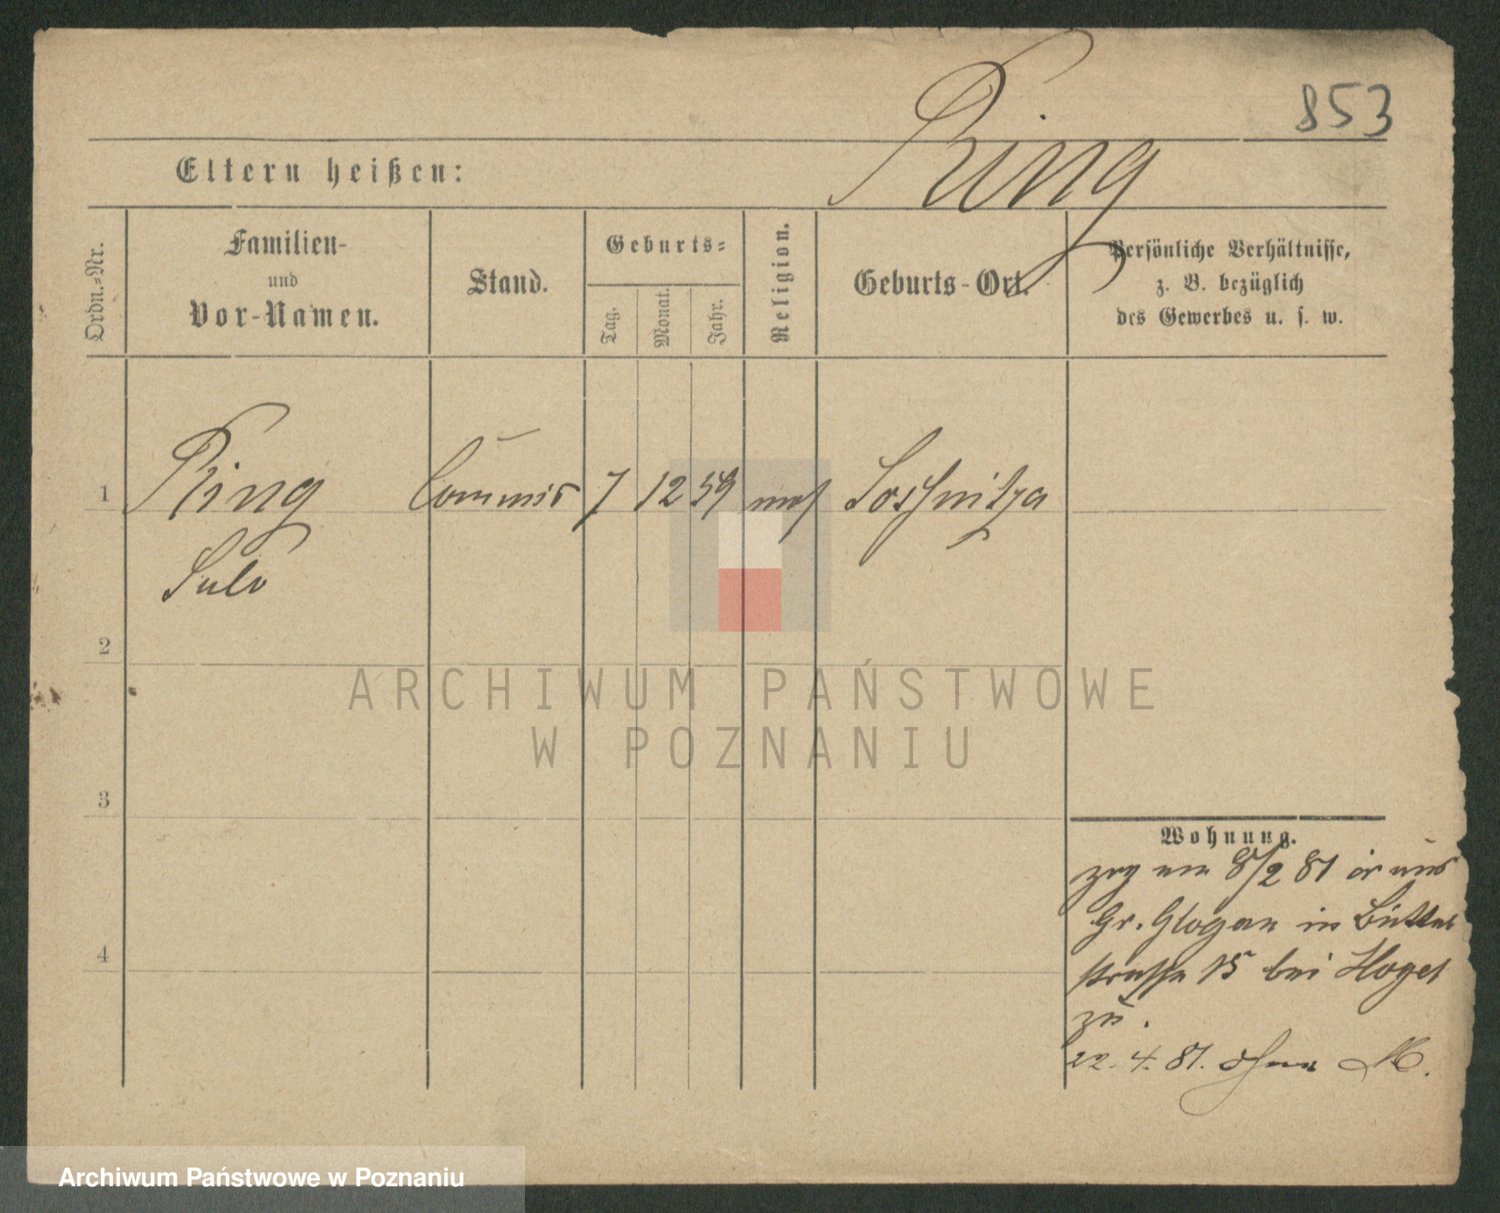 853
Ring
Eltern heißen:
Ordn.-Nr.
Familien-
und
Vor-Namen.
Stand.
Geburts-
Tag.
Monat.
Jahr.
Religion.
Geburts-Ort.
Persönliche Verhältnisse,
z. B. bezüglich
des Gewerbes u. s. w.
1 Ring Commis 7 12 59 mos Soschnitza
Salo
2
3
4
Wohnung.
zog am 8/2 81 aus
Gr. Glogau in Büttel
strasse 15 bei
zu.
22. 4. 81. ohne M.
ARCHIWUM PAŃSTWOWE
W POZNANIU
Archiwum Państwowe w Poznaniu